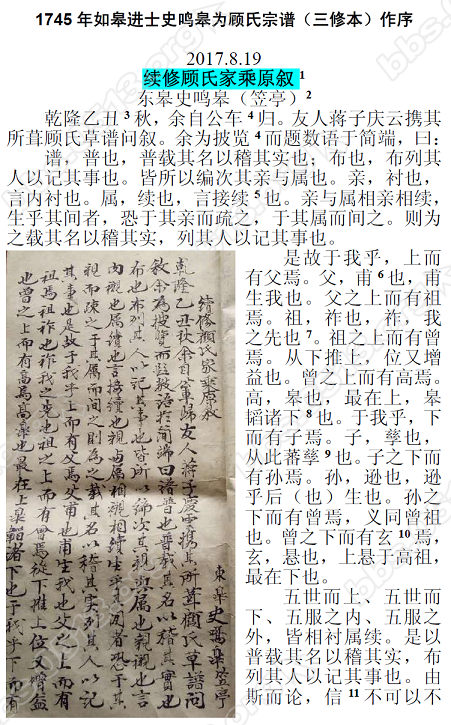 1745年如皋进士史鸣皋为顾氏宗谱（三修本）作序
2017.8.19
续修顾氏家乘原叙1
东皋史鸣皋（笠亭）2
乾隆乙丑3秋，余自公车4归。友人蒋子庆云携其
所葺顾氏草谱问叙。余为披览4而题数语于简端，曰：
谱，普也，普载其名以稽其实也；布也，布列其
人以记其事也。皆所以编次其亲与属也。亲，衬也，
言内衬也。属，续也，言接续5也。亲与属相亲相续，
生乎其间者，恐于其亲而疏之，于其属而间之。则为
之载其名以稽其实，列其人以记其事也。
是故于我乎，上而
有父焉。父，甫6也，甫
生我也。父之上而有祖
焉。祖，祚也，祚，我
之先也7。祖之上而有曾
焉。从下推上，位又增
益也。曾之上而有高焉。
高，皋也，最在上，皋
韬诸下8也。于我乎，下
而有子焉。子，孳也，
从此蕃孳9也。子之下而
有孙焉。孙，逊也，逊
乎后（也）生也。孙之
下而有曾焉，义同曾祖
也。曾之下而有玄10焉，
玄，悬也，上悬于高祖，
最在下也。
五世而上、五世而
下、五服之内、五服之
外，皆相衬属续。是以
普载其名以稽其实，布
列其人以记其事也。由
斯而论，信11不可以不
續修顧氏家乘原叙
東皋史鳴皋笠亭
乾隆乙丑秋余自公車歸友人蔣子慶雲携其所葺顧氏草譜問
叙余為披覽而題數語于简端曰譜普也普载其名以稽其實也
布也布列其人以記其事也皆所以編次其親與属也親襯也言
内襯也属續也言接續也親与属相親相續生乎其间者恐于其
親而疎之于其属而间之則為之载其名以稽其实列其人以記
其事也是故于我乎上而有父焉父甫也甫生我也父之上而有
祖焉祖祚也祚我之先也祖之上而有曾焉從下推上位又增益
也曾之上而有高焉高皋也最在上皋韜諸下也于我乎下而有